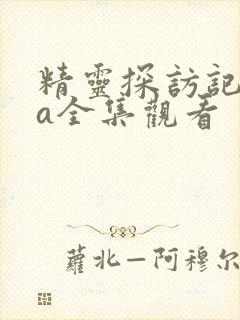 精靈探訪記
a全集觀看
蘿北—阿穆尔